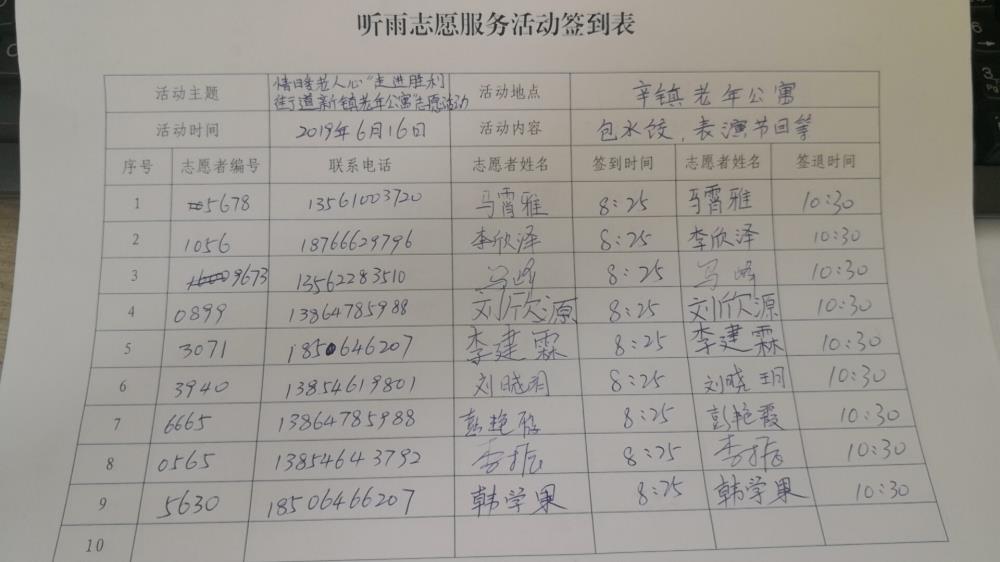 听雨志愿服务活动签到表
活动主题 情暖老人心"走进胜利街道新镇老年公寓"志愿活动 活动地点 辛镇老年公寓
活动时间 2019年6月16日 活动内容 包水饺,表演节目等
序号 志愿者编号 联系电话 志愿者姓名 签到时间 志愿者姓名 签退时间
1 5678 13561003720 马霄雅 8:25 马霄雅 10:30
2 1056 18766629796 李欣泽 8:25 李欣泽 10:30
3 9673 13562283510 马峰 8:25 马峰 10:30
4 0899 13864785988 刘欣源 8:25 刘欣源 10:30
5 3071 1850646207 李建霖 8:25 李建霖 10:30
6 3940 13854619801 刘晓玥 8:25 刘晓玥 10:30
7 6665 13864785988 彭艳霞 8:25 彭艳霞 10:30
8 0565 13854643792 李振 8:25 李振 10:30
9 5630 18506466207 韩学果 8:25 韩学果 10:30
10